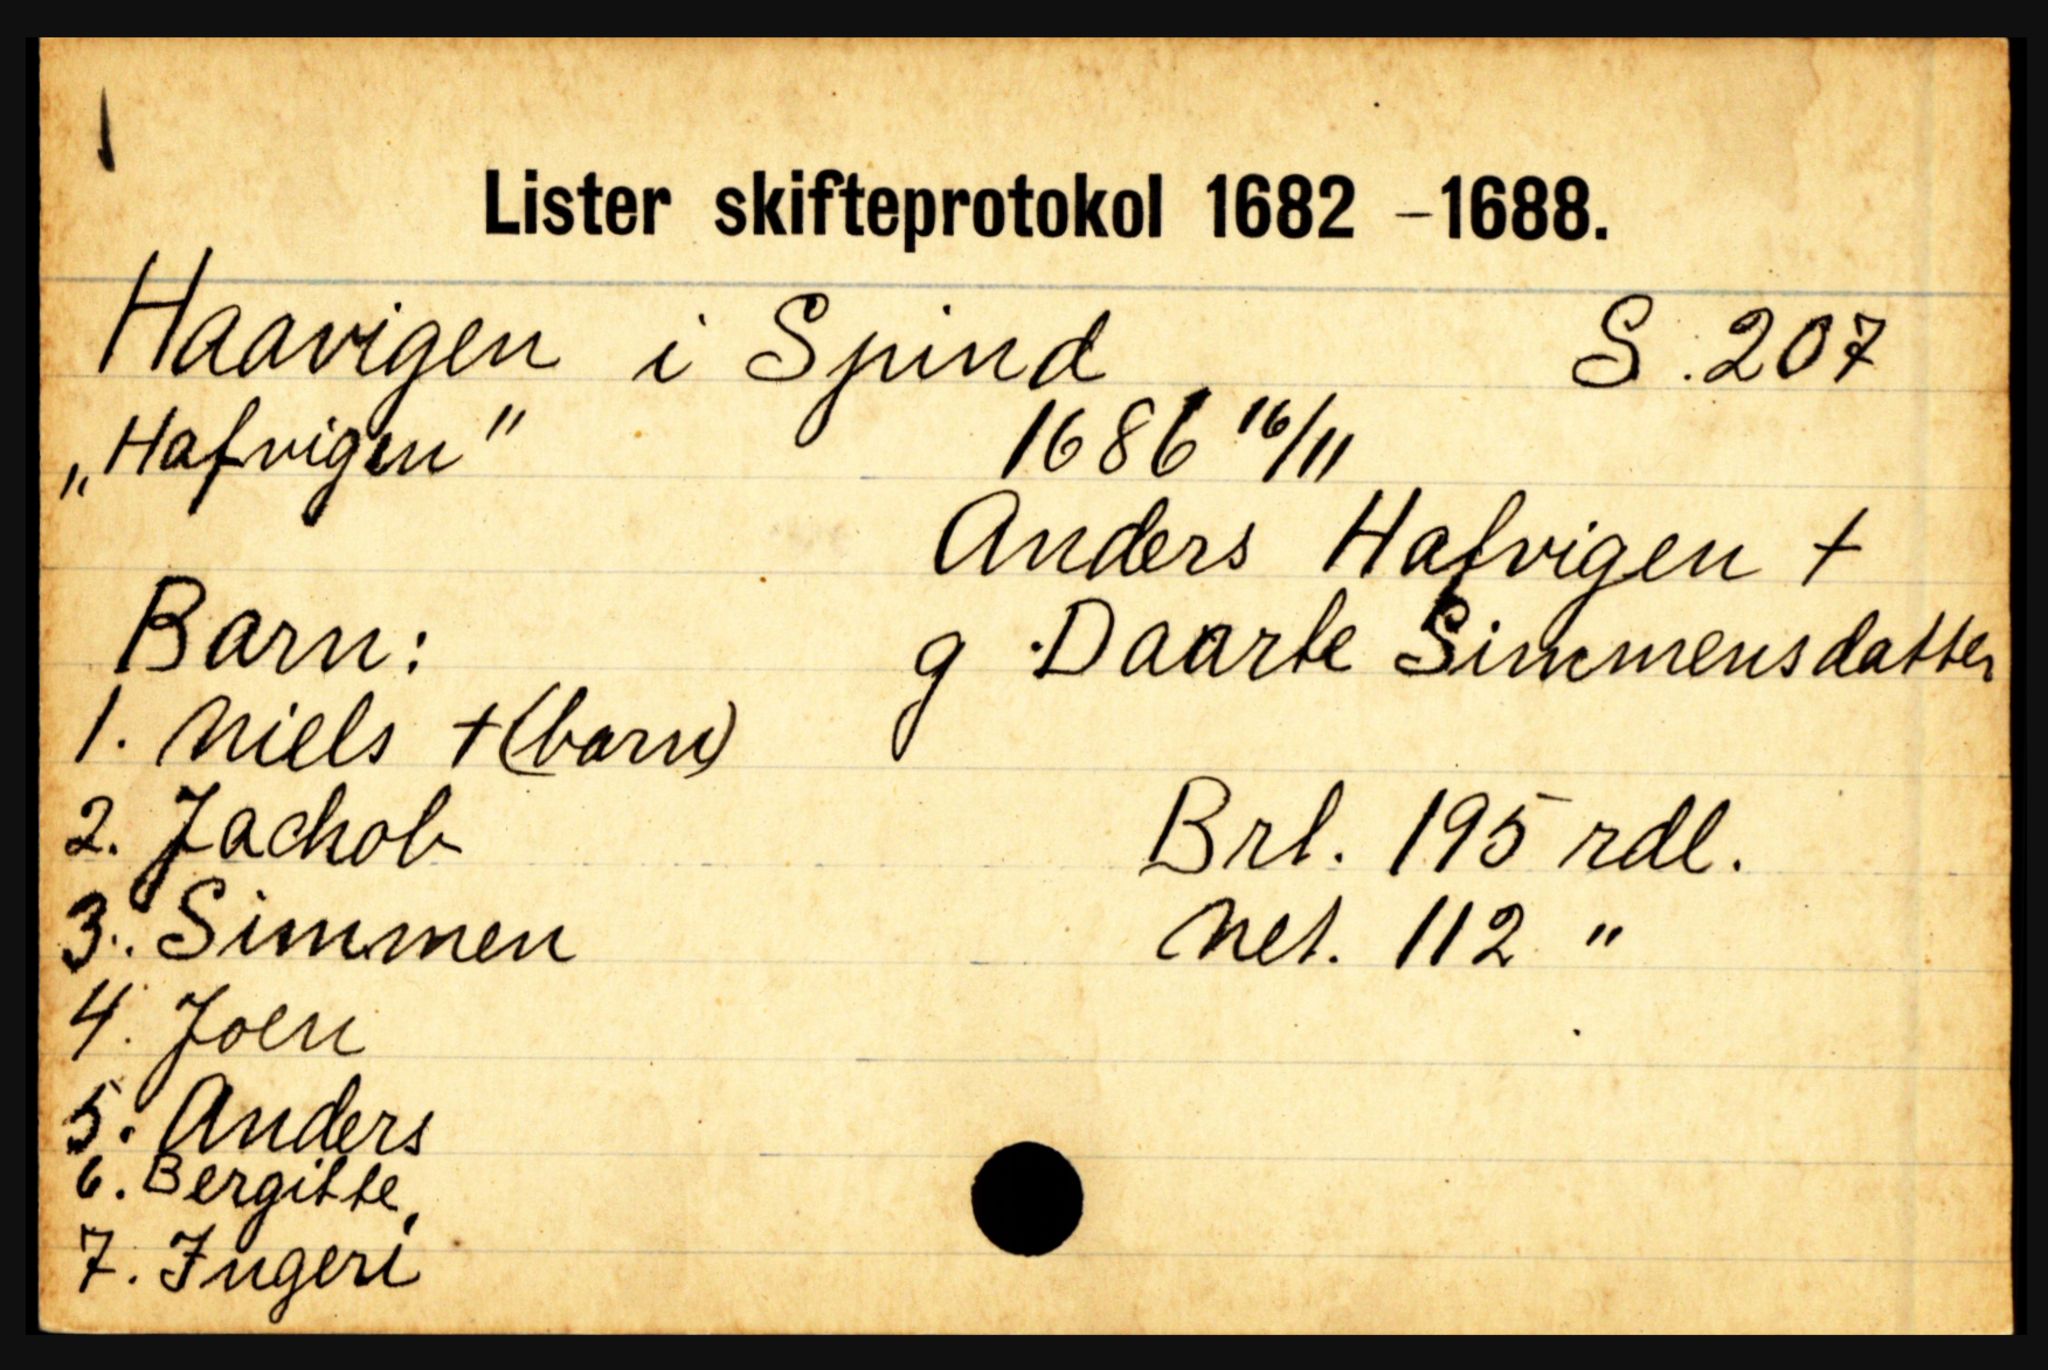 Lister skifteprotokol 1682 - 1688.
Haavigen i Spind S. 207
„Hafvigen" 1686 16/11
Anders Hafvigen +
Barn: g Daarte Simmensdatter
1. Niels + (barn)
2. Jachob Brt. 195 rdl.
3. Simmen Net. 112 "
4. Joen
5. Anders
6. Bergitte,
7. Ingeri